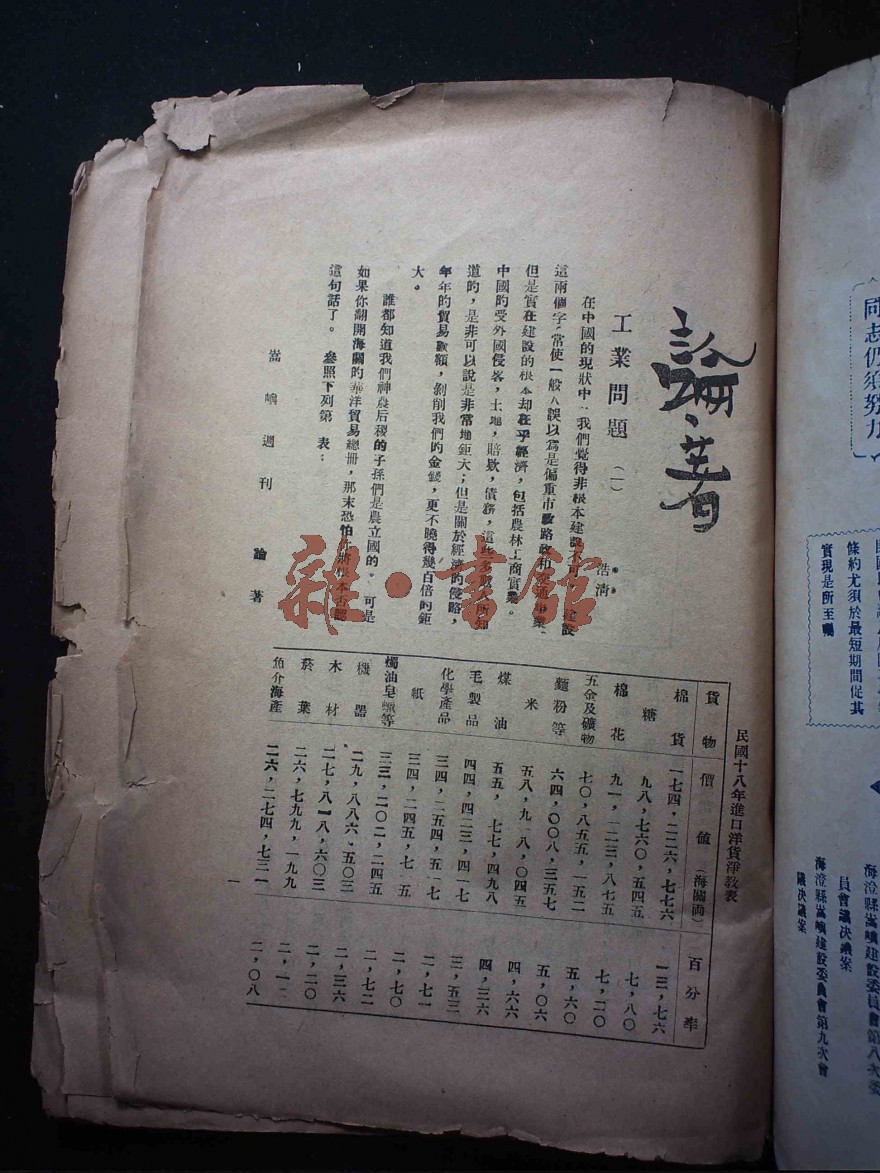 論著
工業問題（一）
浩清
在中國的現狀中，我們覺得非根本建設不可，建設
這兩個字，常使一般人誤以爲是偏重市政路政和交通事業，
但是實在建設的根本却在乎經濟，包括農林工商實業。
中國的受外國侵害，土地，賠欵，債務，這些多數人所知
道的，是非可以說是非常地鉅大；但是關於經濟的侵略，
年年的貿易數額，剝削我們的金錢，更不曉得幾百倍的鉅
大。
誰都知道我們神農后稷的子孫們是農立國的。可是
如果你翻開海關的華洋貿易總冊，那末恐怕你將根本否認
這句話了。參照下列第 表：
嵩嶼週刊 論著
民國十八年進口洋貨淨數表
貨物 價值（海關両） 百分率
棉貨 一七四，二二六，七七六 一三，七六
糖 九八，七六〇，五四五 七，八〇
棉花 九一，一二三，八七五 七，二〇
五金及礦物 七〇，八五五，一五二 五，六〇
麵粉等 六四，〇〇八，三五七 五，〇六
米 五八，九 八，〇四五 四，六六
煤油 五五， 七七，四九八 四，三六
毛製品 四四，四二三，四一七 三，五三
化學產品 三四，二五四，五一七 二，七一
紙 三四，二四五，七 五 二，七〇
燭油皂蠟等 三三，二〇二，二四五 二，七二
機器 二九，八八六，五〇三 二，三六
木材 二七，八一八，六〇三 二，二〇
菸葉 二六，七九九，一九九 二，一二
魚介海產 二六，二七四，七三一 二，〇八
一
雜·書館
同志仍須努力
條約尤須於最短期間促其
實現是所至囑
海澄縣嵩嶼建設委員會第八次委
員會議决議案
海澄縣嵩嶼建設委員會第九次會
議决議案